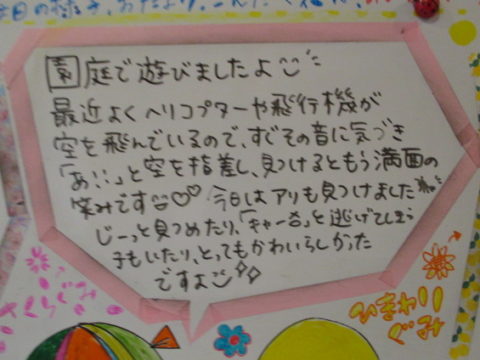 園庭で遊びましたよ
最近よくヘリコプターや飛行機が
空を飛んでいるので、すぐその音に気づき
「あ!!」と空を指差し、見つけるともう満面の
笑みです♡♡ 今日はアリも見つけました
じーっと見つめたり、「キャーっ」と逃げてしまう
子もいたり、とってもかわいらしかった
ですよ
さくらぐみ
ひまわり
ぐみ